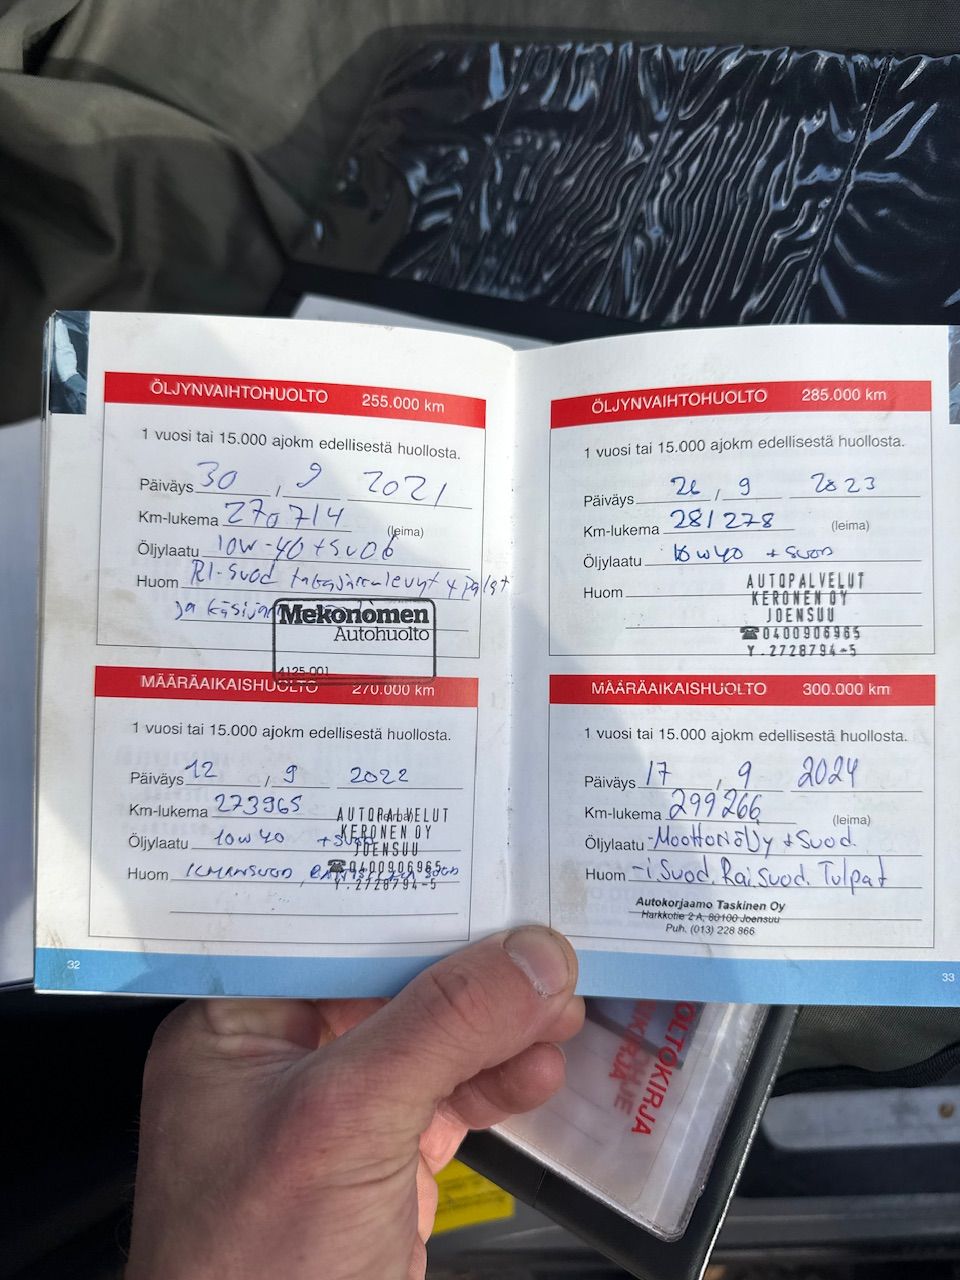 ÖLJYNVAIHTOHUOLTO 255.000 km
1 vuosi tai 15.000 ajokm edellisestä huollosta.
Päiväys 30 / 9 2021
Km-lukema 270714 (leima)
Öljylaatu 10W-40 + SUOD
Huom RI-Suod takajarrulevyt + palat
ja käsijar
Mekonomen
Autohuolto
4125-001
MÄÄRÄAIKAISHUOLTO 270.000 km
1 vuosi tai 15.000 ajokm edellisestä huollosta.
Päiväys 12 / 9 2022
Km-lukema 273965 (leima)
Öljylaatu 10w40 + Suod
Huom ILMANSUOD,
AUTOPALVELUT
KERONEN OY
JOENSUU
☎0400906965
Y.2728794-5
32
ÖLJYNVAIHTOHUOLTO 285.000 km
1 vuosi tai 15.000 ajokm edellisestä huollosta.
Päiväys 26 / 9 2023
Km-lukema 281278 (leima)
Öljylaatu 10w40 + Suod
Huom
AUTOPALVELUT
KERONEN OY
JOENSUU
☎0400906965
Y.2728794-5
MÄÄRÄAIKAISHUOLTO 300.000 km
1 vuosi tai 15.000 ajokm edellisestä huollosta.
Päiväys 17 / 9 2024
Km-lukema 299266 (leima)
Öljylaatu -Moottoriöljy + Suod.
Huom -i.Suod. Rai.Suod. Tulpat
Autokorjaamo Taskinen Oy
Harkkotie 2 A, 80100 Joensuu
Puh. (013) 228 866
33